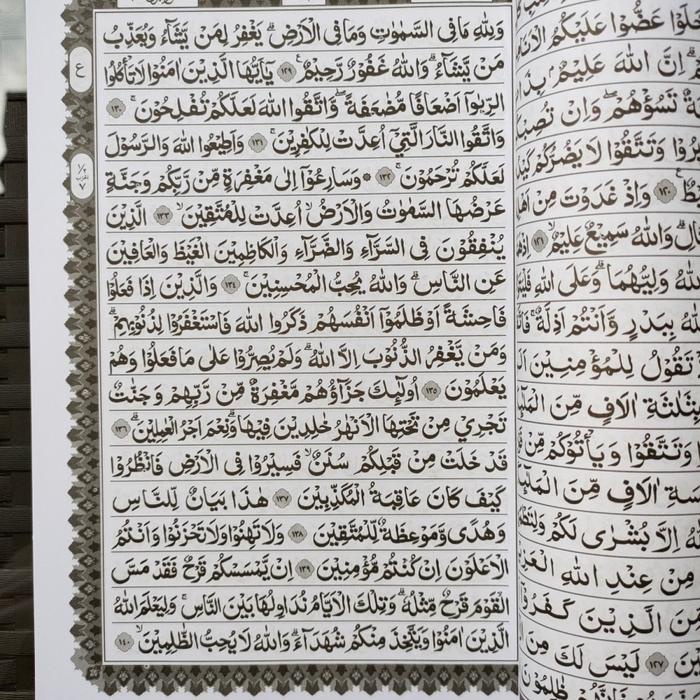 وَلِلّٰهِ مَا فِى السَّمٰوٰتِ وَمَا فِى الْاَرْضِ ۗ يَغْفِرُ لِمَنْ يَّشَاۤءُ وَيُعَذِّبُ
مَنْ يَّشَاۤءُ ۗ وَاللّٰهُ غَفُوْرٌ رَّحِيْمٌ ࣖ ١٢٩ يٰٓاَيُّهَا الَّذِيْنَ اٰمَنُوْا لَا تَأْكُلُوا
الرِّبٰوٓا اَضْعَافًا مُّضٰعَفَةً ۖ وَّاتَّقُوا اللّٰهَ لَعَلَّكُمْ تُفْلِحُوْنَ ۚ ١٣٠
وَاتَّقُوا النَّارَ الَّتِيْٓ اُعِدَّتْ لِلْكٰفِرِيْنَ ۚ ١٣١ وَاَطِيْعُوا اللّٰهَ وَالرَّسُوْلَ
لَعَلَّكُمْ تُرْحَمُوْنَ ۚ ١٣٢ ۞ وَسَارِعُوْٓا اِلٰى مَغْفِرَةٍ مِّنْ رَّبِّكُمْ وَجَنَّةٍ
عَرْضُهَا السَّمٰوٰتُ وَالْاَرْضُ ۙ اُعِدَّتْ لِلْمُتَّقِيْنَ ۙ ١٣٣ الَّذِيْنَ
يُنْفِقُوْنَ فِى السَّرَّاۤءِ وَالضَّرَّاۤءِ وَالْكَاظِمِيْنَ الْغَيْظَ وَالْعَافِيْنَ
عَنِ النَّاسِ ۗ وَاللّٰهُ يُحِبُّ الْمُحْسِنِيْنَ ۚ ١٣٤ وَالَّذِيْنَ اِذَا فَعَلُوْا
فَاحِشَةً اَوْ ظَلَمُوْٓا اَنْفُسَهُمْ ذَكَرُوا اللّٰهَ فَاسْتَغْفَرُوْا لِذُنُوْبِهِمْ ۗ
وَمَنْ يَّغْفِرُ الذُّنُوْبَ اِلَّا اللّٰهُ ۗ وَلَمْ يُصِرُّوْا عَلٰى مَا فَعَلُوْا وَهُمْ
يَعْلَمُوْنَ ١٣٥ اُولٰۤىِٕكَ جَزَاۤؤُهُمْ مَّغْفِرَةٌ مِّنْ رَّبِّهِمْ وَجَنّٰتٌ
تَجْرِيْ مِنْ تَحْتِهَا الْاَنْهٰرُ خٰلِدِيْنَ فِيْهَا ۗ وَنِعْمَ اَجْرُ الْعٰمِلِيْنَ ۗ ١٣٦
قَدْ خَلَتْ مِنْ قَبْلِكُمْ سُنَنٌ ۙ فَسِيْرُوْا فِى الْاَرْضِ فَانْظُرُوْا
كَيْفَ كَانَ عَاقِبَةُ الْمُكَذِّبِيْنَ ١٣٧ هٰذَا بَيَانٌ لِّلنَّاسِ
وَهُدًى وَّمَوْعِظَةٌ لِّلْمُتَّقِيْنَ ١٣٨ وَلَا تَهِنُوْا وَلَا تَحْزَنُوْا وَاَنْتُمُ
الْاَعْلَوْنَ اِنْ كُنْتُمْ مُّؤْمِنِيْنَ ١٣٩ اِنْ يَّمْسَسْكُمْ قَرْحٌ فَقَدْ مَسَّ
الْقَوْمَ قَرْحٌ مِّثْلُهٗ ۗ وَتِلْكَ الْاَيَّامُ نُدَاوِلُهَا بَيْنَ النَّاسِ ۚ وَلِيَعْلَمَ اللّٰهُ
الَّذِيْنَ اٰمَنُوْا وَيَتَّخِذَ مِنْكُمْ شُهَدَاۤءَ ۗ وَاللّٰهُ لَا يُحِبُّ الظّٰلِمِيْنَ ۙ ١٤٠
ع
عَضُّوْا عَلَيْكُمُ
اِنَّ اللّٰهَ عَلِيْمٌ
تَسُؤْهُمْ ۖ وَاِنْ
وَتَتَّقُوْا لَا يَضُرُّكُمْ
١٢٠ وَاِذْ غَدَوْتَ مِنْ
وَاللّٰهُ سَمِيْعٌ عَلِيْمٌ ۙ ١٢١
وَلِيُّهُمَا ۗ وَعَلَى اللّٰهِ
بِبَدْرٍ وَّاَنْتُمْ اَذِلَّةٌ ۚ
تَقُوْلُ لِلْمُؤْمِنِيْنَ
بِثَلٰثَةِ اٰلَافٍ مِّنَ
وَتَتَّقُوْا وَيَأْتُوْكُمْ مِّنْ
اٰلَافٍ مِّنَ
اِلَّا بُشْرٰى لَكُمْ
مِنْ عِنْدِ اللّٰهِ
مِّنَ الَّذِيْنَ كَفَرُوْٓا
١٢٧ لَيْسَ لَكَ مِنَ